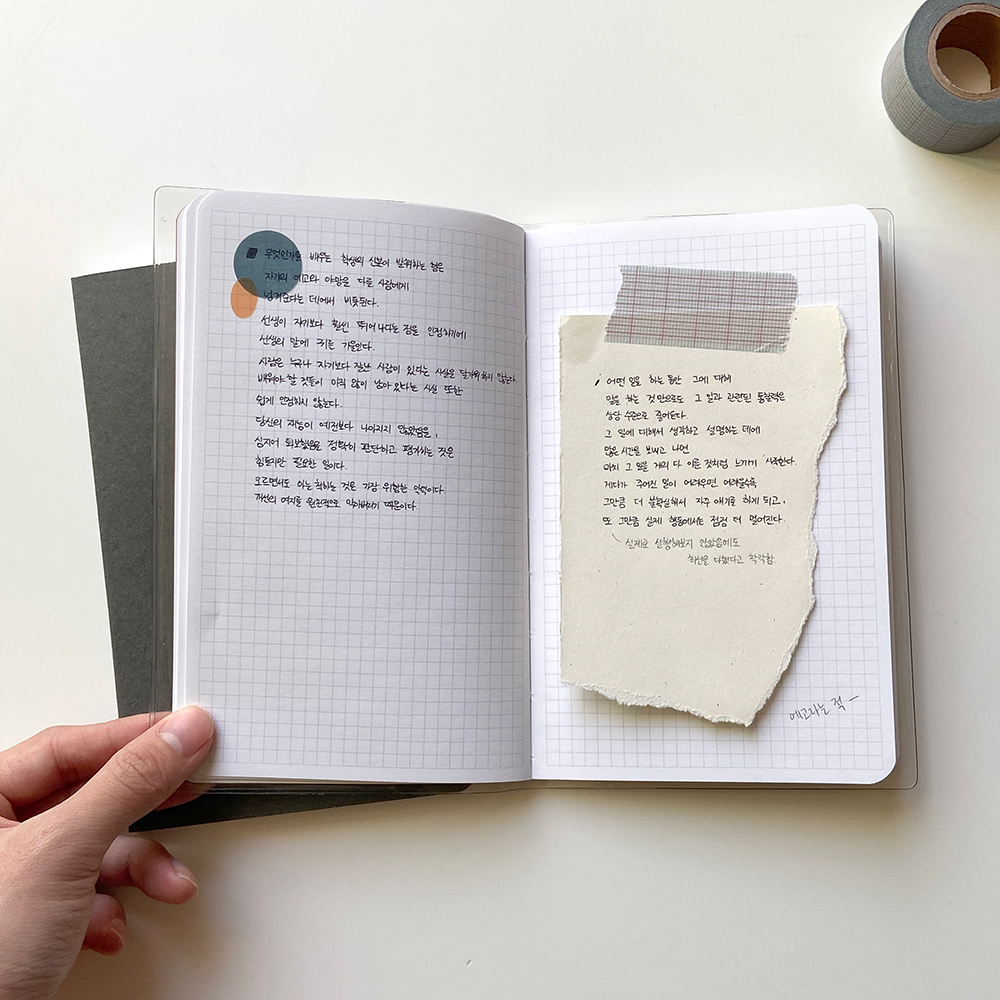 무엇인가를 배우는 학생의 신분이 발휘하는 힘은
자기의 에고와 야망을 다른 사람에게
넘겨준다는 데에서 비롯된다.
선생이 자기보다 훨씬 뛰어나다는 점을 인정하기에
선생의 말에 귀를 기울인다.
사람은 누구나 자기보다 잘난 사람이 있다는 사실을 달가워하지 않는다
배워야할 것들이 아직 많이 남아있다는 사실 또한
쉽게 인정하지 않는다.
당신의 재능이 예전보다 나아지지 않았음을,
심지어 퇴보했음을 정확히 판단하고 평가하는 것은
힘들지만 필요한 일이다.
모르면서도 아는척하는 것은 가장 위험한 악덕이다
개선의 여지를 원천적으로 막아버리기 때문이다
어떤 일을 하는 동안 그에 대해
말을 하는 것만으로도 그 일과 관련된 통찰력은
상당 수준으로 줄어든다.
그 일에 대해서 생각하고 설명하는 데에
많은 시간을 보내고 나면
마치 그 일을 거의 다 이룬 것처럼 느끼기 시작한다.
게다가 주어진 일이 어려우면 어려울수록
그만큼 더 불확실해서 자주 얘기를 하게 되고,
또 그만큼 실제 행동에서는 점점 더 멀어진다.
실제로 실행해보지 않았음에도
최선을 다했다고 착각함.
에고라는 적 -